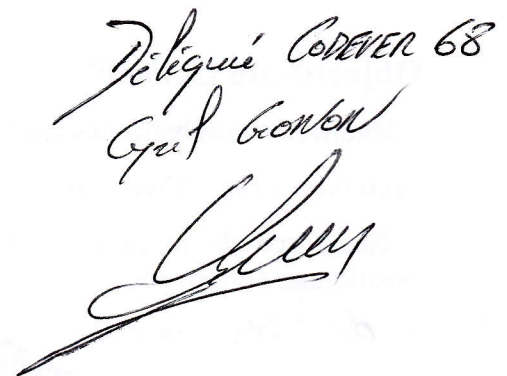 Délégué CODEVER 68
Cyril GONON